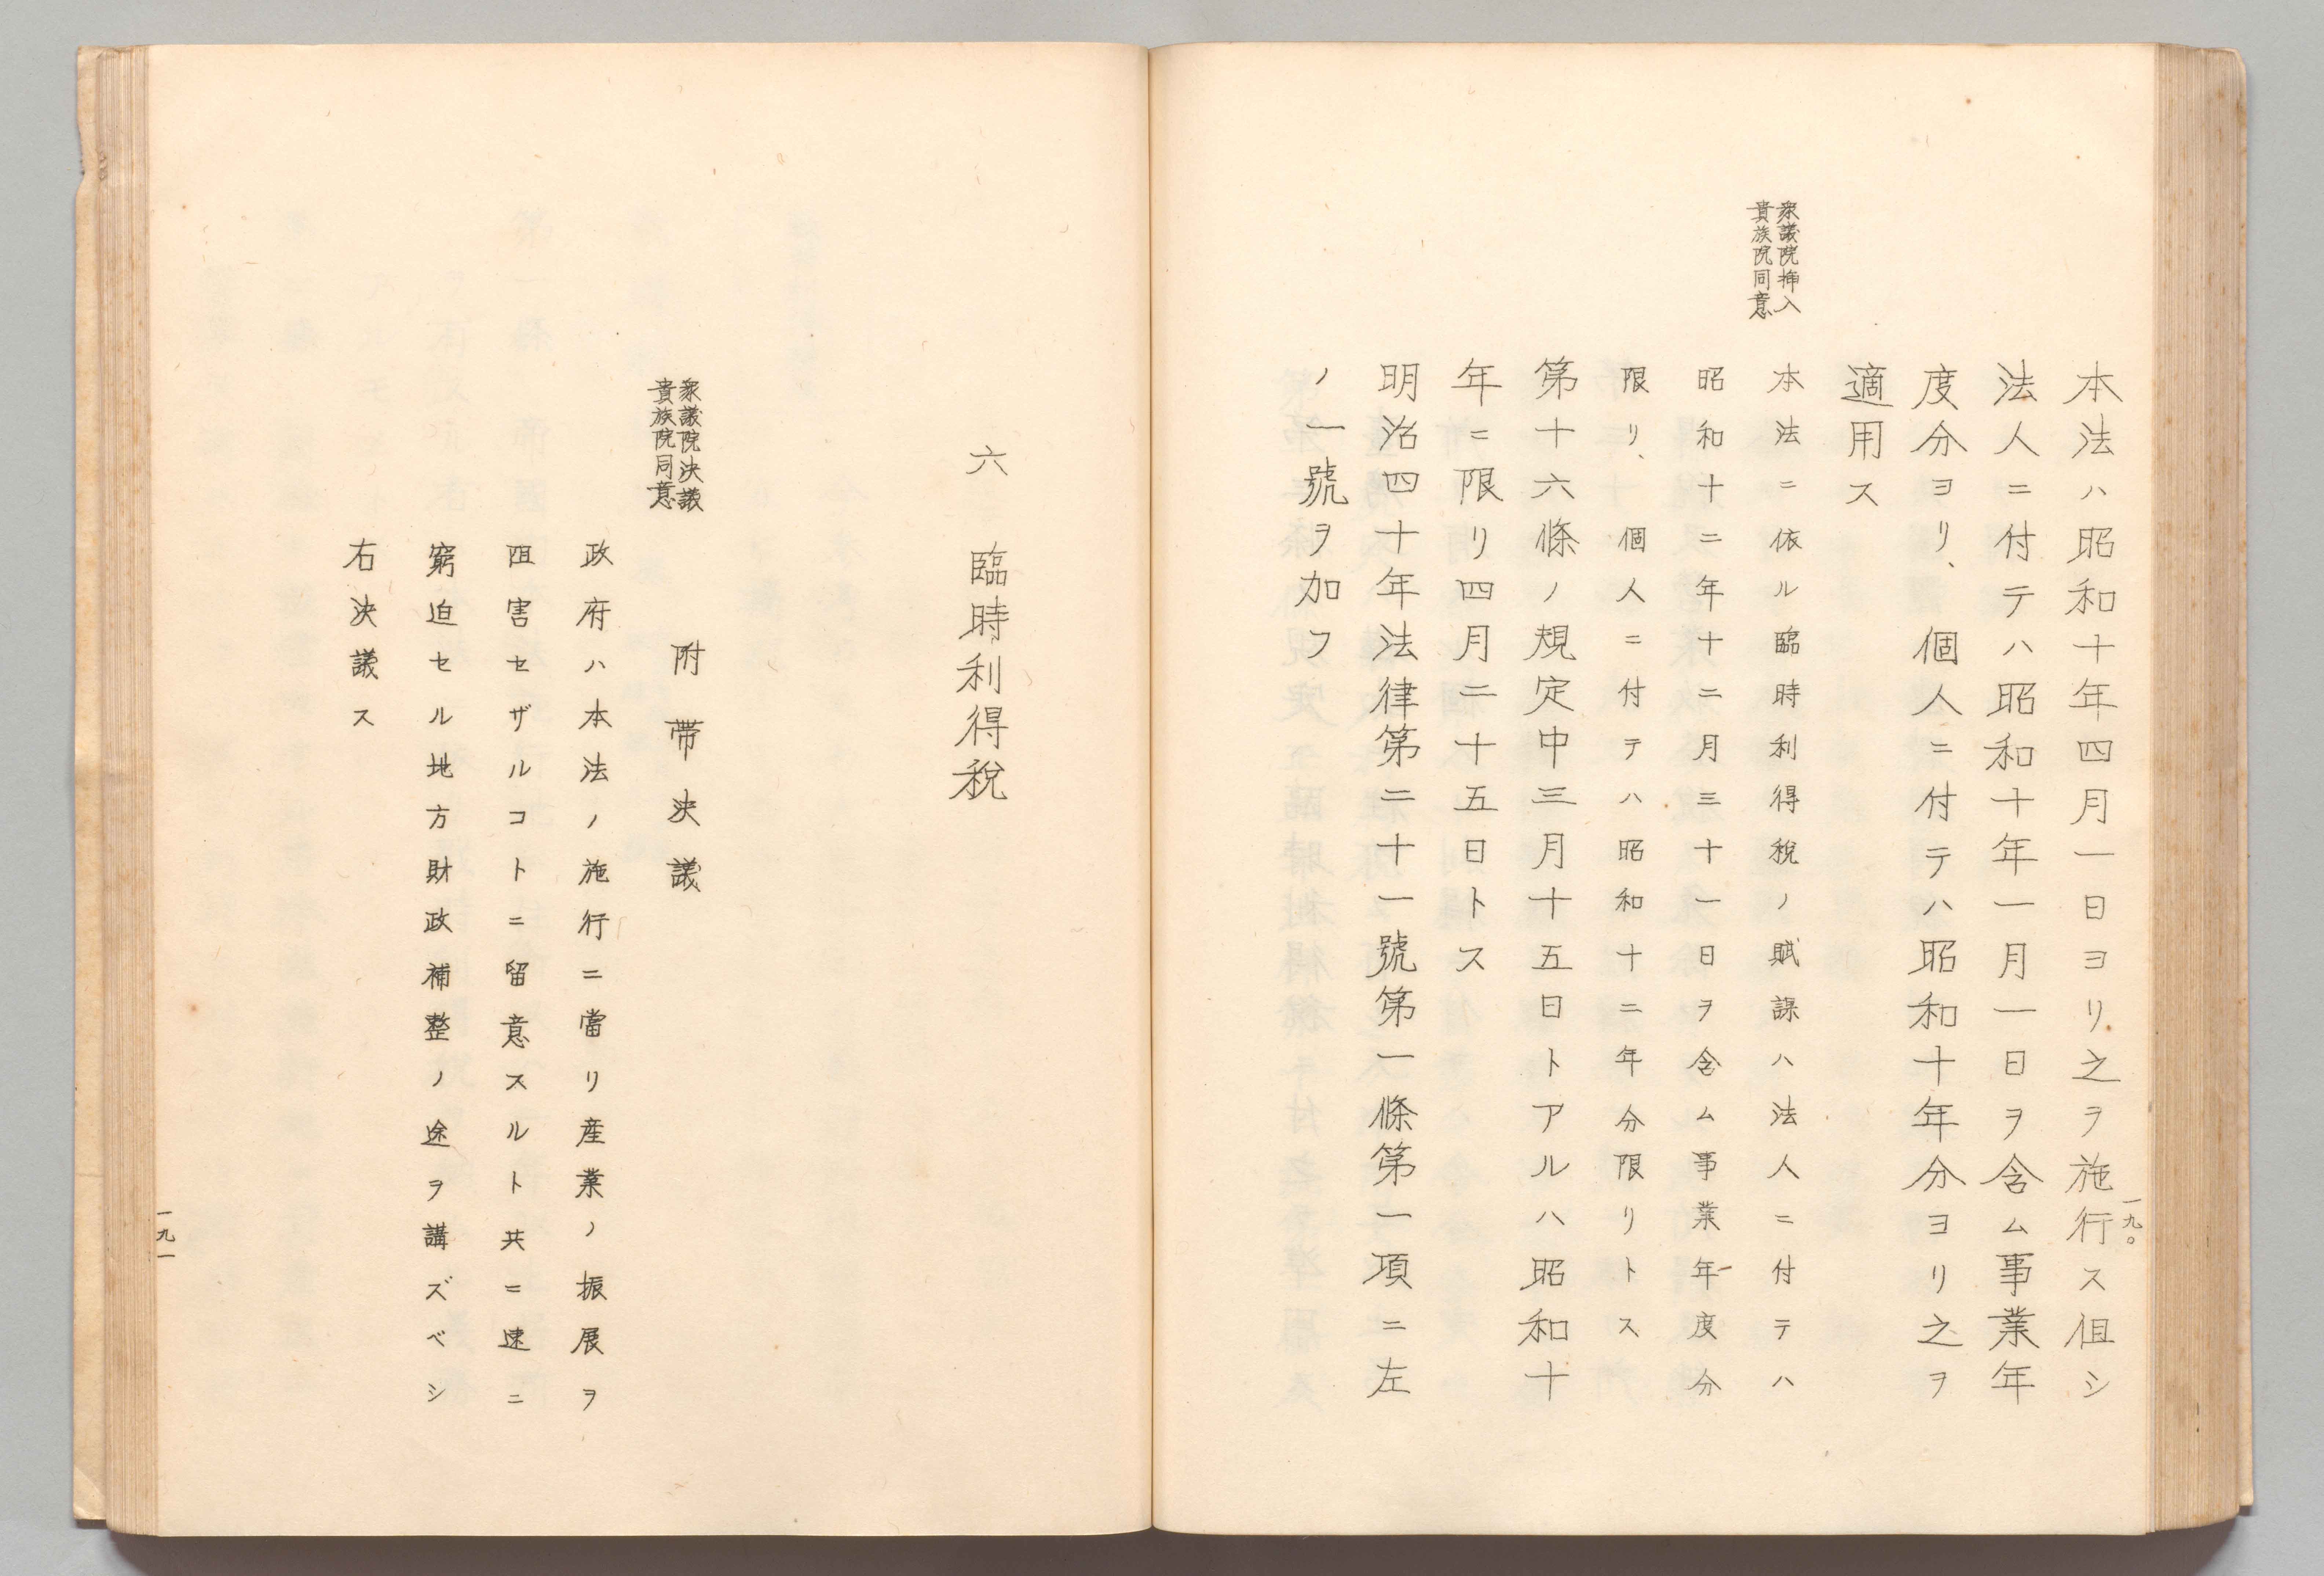 一九〇
本法ハ昭和十年四月一日ヨリ之ヲ施行ス但シ
法人ニ付テハ昭和十年一月一日ヲ含ム事業年
度分ヨリ、個人ニ付テハ昭和十年分ヨリ之ヲ
適用ス
衆議院挿入
貴族院同意
本法ニ依ル臨時利得税ノ賦課ハ法人ニ付テハ
昭和十二年十二月三十一日ヲ含ム事業年度分
限リ、個人ニ付テハ昭和十二年分限リトス
第十六條ノ規定中三月十五日トアルハ昭和十
年ニ限リ四月二十五日トス
明治四十年法律第二十一號第一條第一項ニ左
ノ一號ヲ加フ
六 臨時利得税
衆議院決議
貴族院同意
附帯決議
政府ハ本法ノ施行ニ當リ産業ノ振展ヲ
阻害セザルコトニ留意スルト共ニ速ニ
窮迫セル地方財政補整ノ途ヲ講ズベシ
右決議ス
一九一